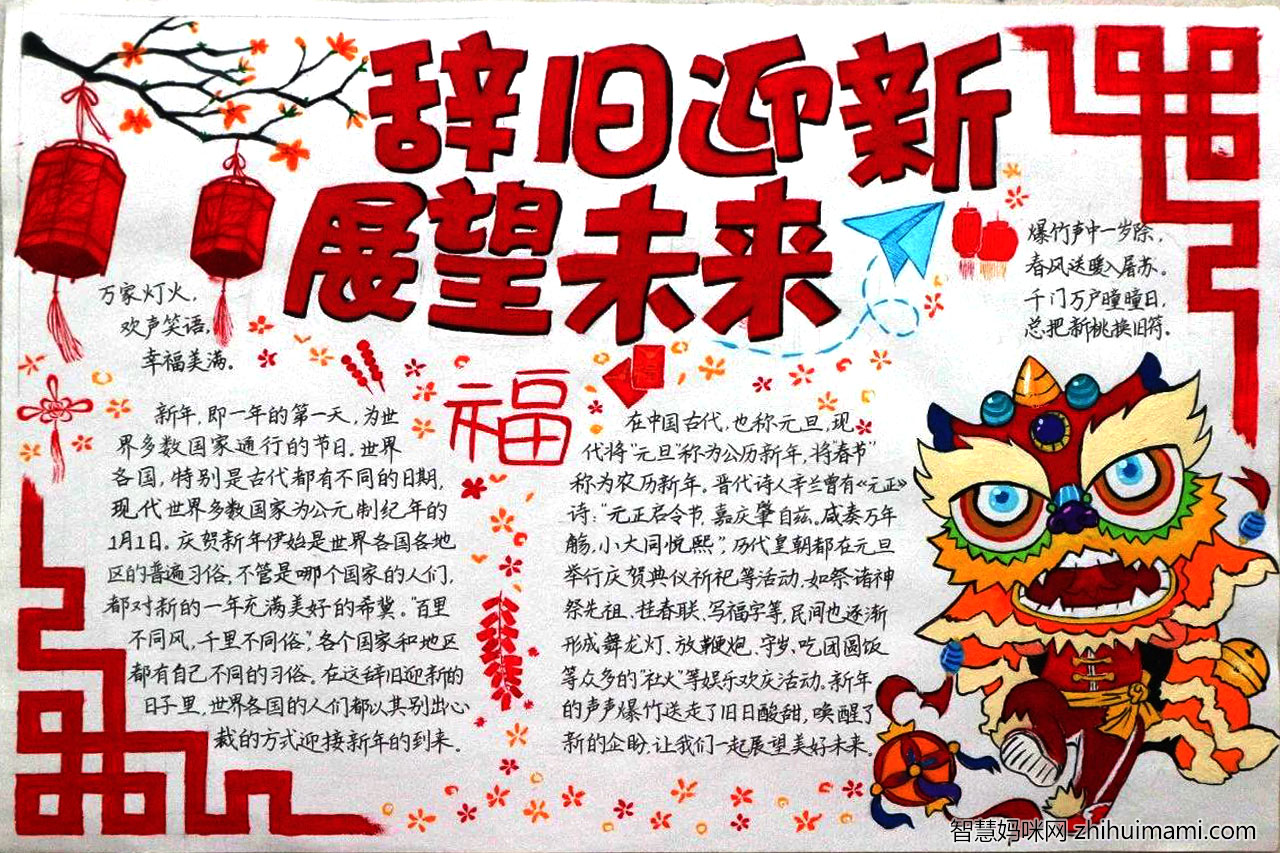 辞旧迎新
展望未来
万家灯火，
欢声笑语，
幸福美满。
爆竹声中一岁除，
春风送暖入屠苏。
千门万户曈曈日，
总把新桃换旧符。
福
新年，即一年的第一天，为世
界多数国家通行的节日。世界
各国，特别是古代都有不同的日期，
现代世界多数国家为公元制纪年的
1月1日。庆贺新年伊始是世界各国各地
区的普遍习俗，不管是哪个国家的人们，
都对新的一年充满美好的希冀。“百里
不同风，千里不同俗”，各个国家和地区
都有自己不同的习俗。在这辞旧迎新的
日子里，世界各国的人们都以其别出心
裁的方式迎接新年的到来。
在中国古代，也称元旦，现
代将“元旦”称为公历新年，将“春节”
称为农历新年。晋代诗人辛兰曾有《元正》
诗：“元正启令节，嘉庆肇自兹。咸奏万年
觞，小大同悦熙”，历代皇朝都在元旦
举行庆贺典仪祈祀等活动，如祭诸神
祭先祖、挂春联、写福字等，民间也逐渐
形成舞龙灯、放鞭炮、守岁、吃团圆饭
等众多的“社火”等娱乐欢庆活动。新年
的声声爆竹送走了旧日酸甜，唤醒了
新的企盼，让我们一起展望美好未来。
智慧妈咪网 zhihuimami.com